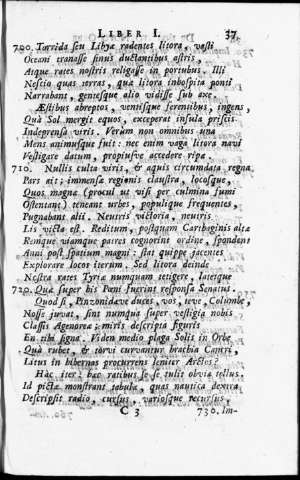 LIBER I. 37
700. Torrida seu Libyæ radentes litora, vasti
Oceani tranasse sinus ductantibus astris,
Atque rates nostris religasse in portubus. Illi
Nescio quas terras, qua litora inhospita ponti
Narrabant, gentesque alio vidisse sub axe.
Æstibus abreptos, ventisque ferentibus, ingens,
Quà Sol mergit equos, exceperat insula priscis
Indeprensa viris. Verùm non omnibus una
Mens animusque fuit: nec enim vaga litora navi
Vestigare datum, propiusve accedere ripa.
710. Nullis culta viris, & aquis circumdata regna
Pars ait: immensa regionis claustra, locosque,
Quos magna (procul ut visi per culmina fumi
Ostentant) teneant urbes, populique frequentes,
Pugnabant alii. Neutris victoria, neutris
Lis victa est. Reditum, postquam Carthaginis alta
Remque viamque patres cognorint ordine, spondent
Anni post spatium magni: stat quippe jacentes
Explorare locos iterum. Sed litora deinde
Nostra rates Tyriæ numquam tetigere, latetque
720. Quæ super his Pœni fuerint responsa Senatus.
Quod si, Pinzonidæve duces, vos, teve, Columbe,
Nosse juvat, sint numqua super vestigia nobis
Classis Agenoreæ; miris descripta figuris
En tibi signa. Viden medio plaga Solis in Orbe
Quà rubet, & torvi curvantur brachia Cancri,
Litus in hibernas procurrens leniter Arctos?
Hàc iter: hàc ratibus se se tulit obvia tellus.
Id picta monstrant tabulæ, quas nautica dextra
Descripsit radio, cursus, variosque recursus,
C 3 730. Im-